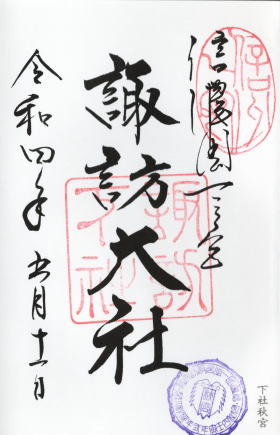 信濃國一之宮
諏訪大社
令和四年五月十一日
下社秋宮